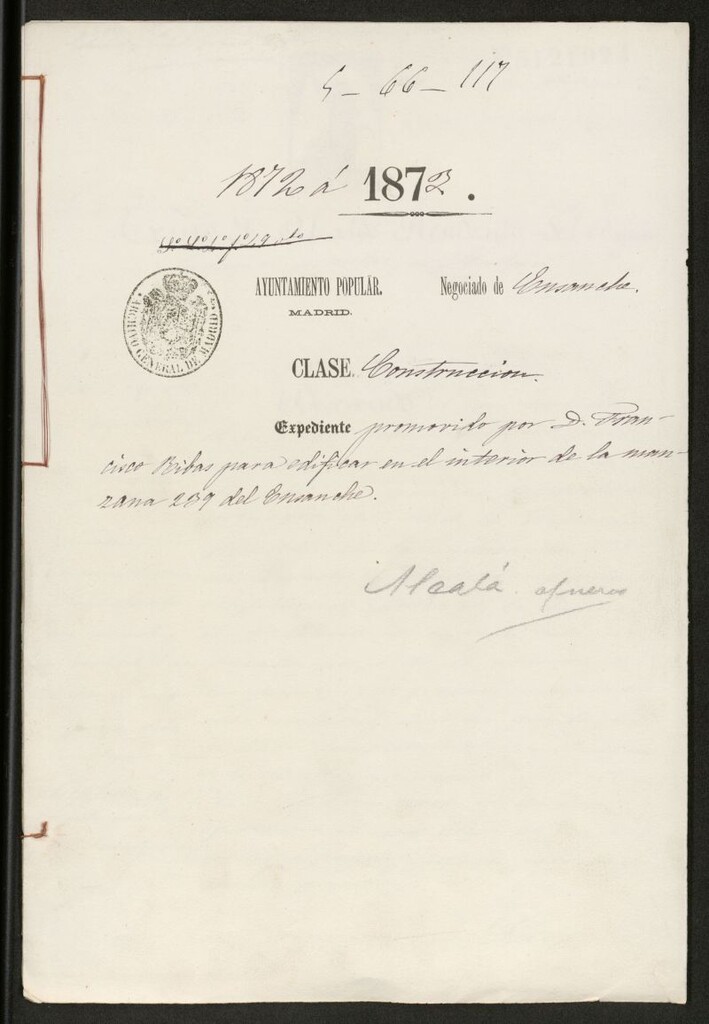 5-66-117
1872 á 1873.
ARCHIVO GENERAL DE MADRID
AYUNTAMIENTO POPULAR. Negociado de Ensanche.
MADRID.
CLASE. Construccion.
Expediente promovido por D. Fran-
cisco Ribas para edificar en el interior de la man-
zana 239 del Ensanche.
Alcalá afueras